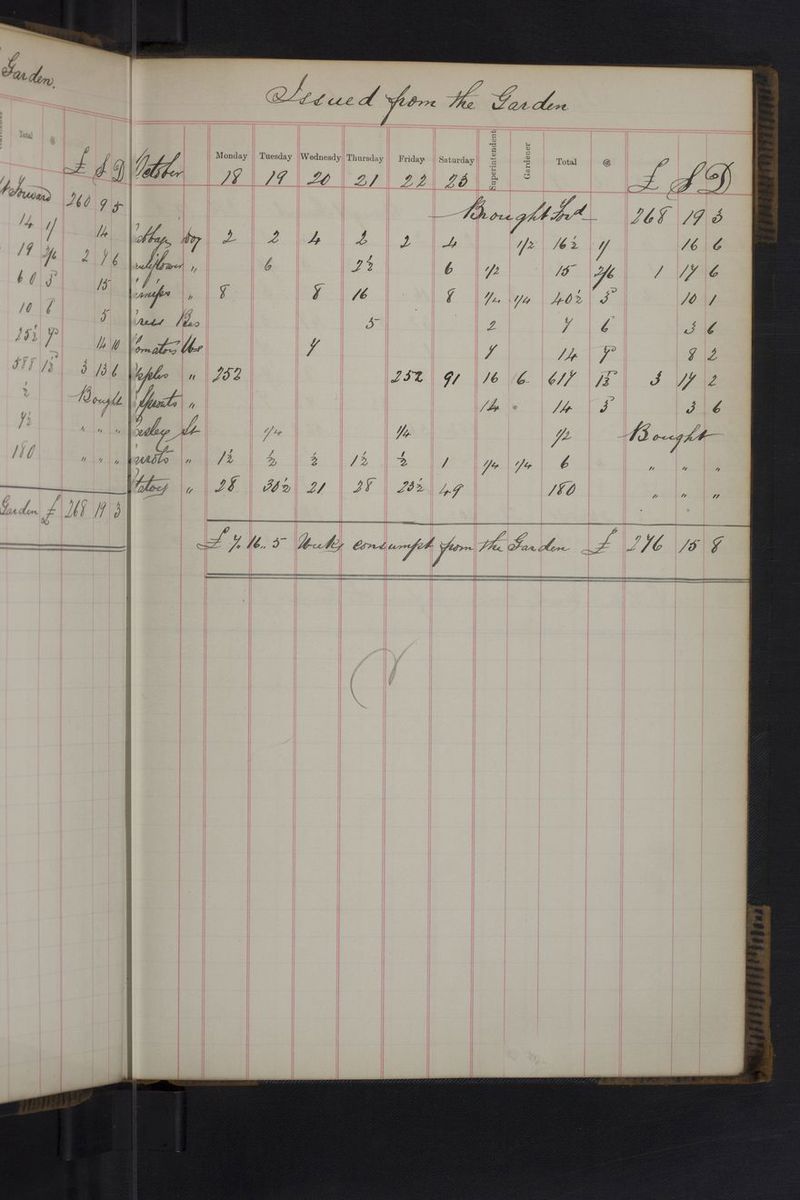 Garden.
Total @ £ S D
Forward 260 9 5
14 1/ 14
19 2/6 2 7 6
60 3 15
10 6 5
25½ 7 14 10
588 1½ 3 13 6
½ Bought
7½ " " "
180 " " "
Garden £ 268 19 3
Issued from the Garden
October Monday 18 Tuesday 19 Wednesdy 20 Thursday 21 Friday 22 Saturday 23 Superintendent Gardener Total @ £ S D
Brought Ford 268 19 3
abbage Doz 2 2 4 2 2 4 1/2 16½ 1/ 16 6
auliflower " 6 2½ 6 1/2 15 2/6 1 17 6
urnips " 8 8 16 8 1/4 1/4 40½ 3 10 1
ress Bas 5 2 7 6 3 6
omatoes lbs 7 7 14 7 8 2
pples " 252 252 91 16 6 617 1½ 3 17 2
Sprouts " 14 " 14 3 3 6
St 1/4 1/4 1/2 Bought
arrots " 1½ ½ ½ 1½ ½ 1 1/4 1/4 6 " " "
tatoes " 28 30½ 21 28 23½ 49 180 " " "
£ 7. 16.. 5 Weeks consumpt from the Garden £ 276 15 8